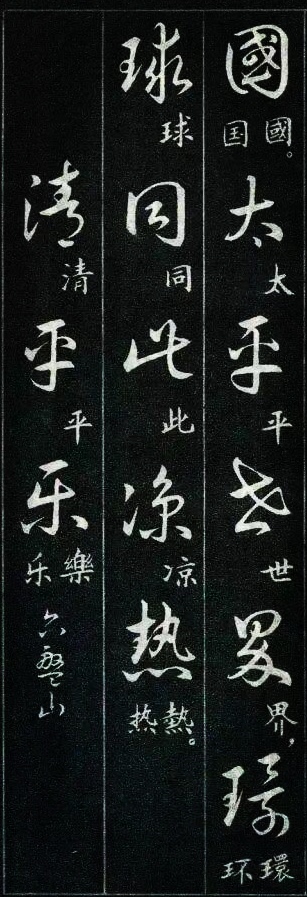 國國。国太太平平世世界界，環環环
球球同同此此凉凉热熱。热
清清平平乐樂乐六盤山